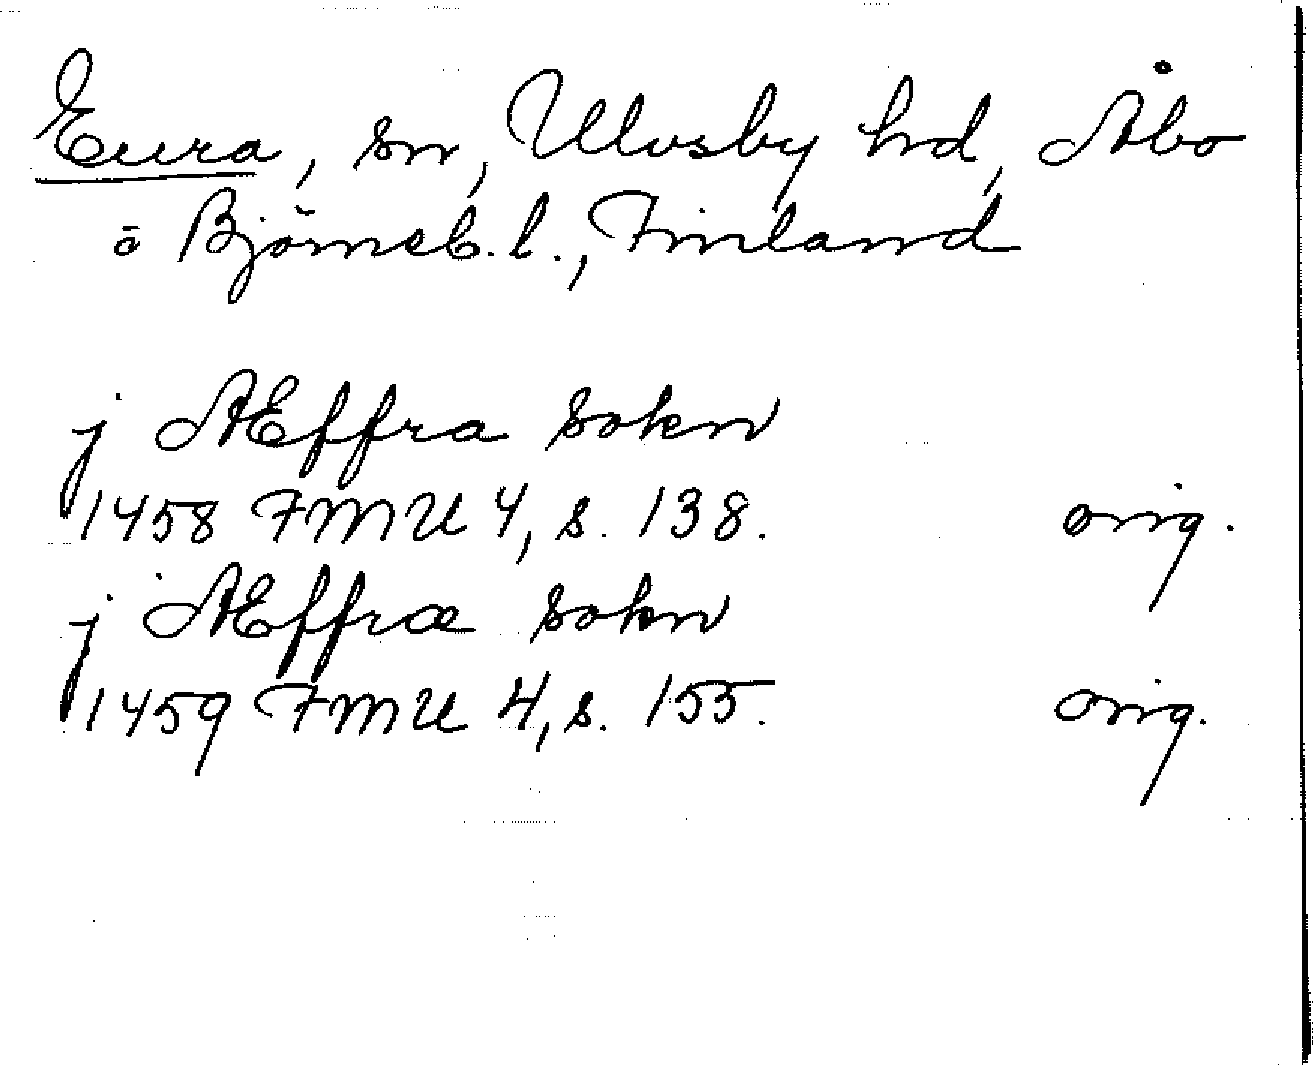 Eura, sn, Ulvsby hd, Åbo
o Björneb. l., Finland
j Æffra sokn
1458 FMU 4, s. 138. orig.
j Æffræ sokn
1459 FMU 4, s. 155. orig.